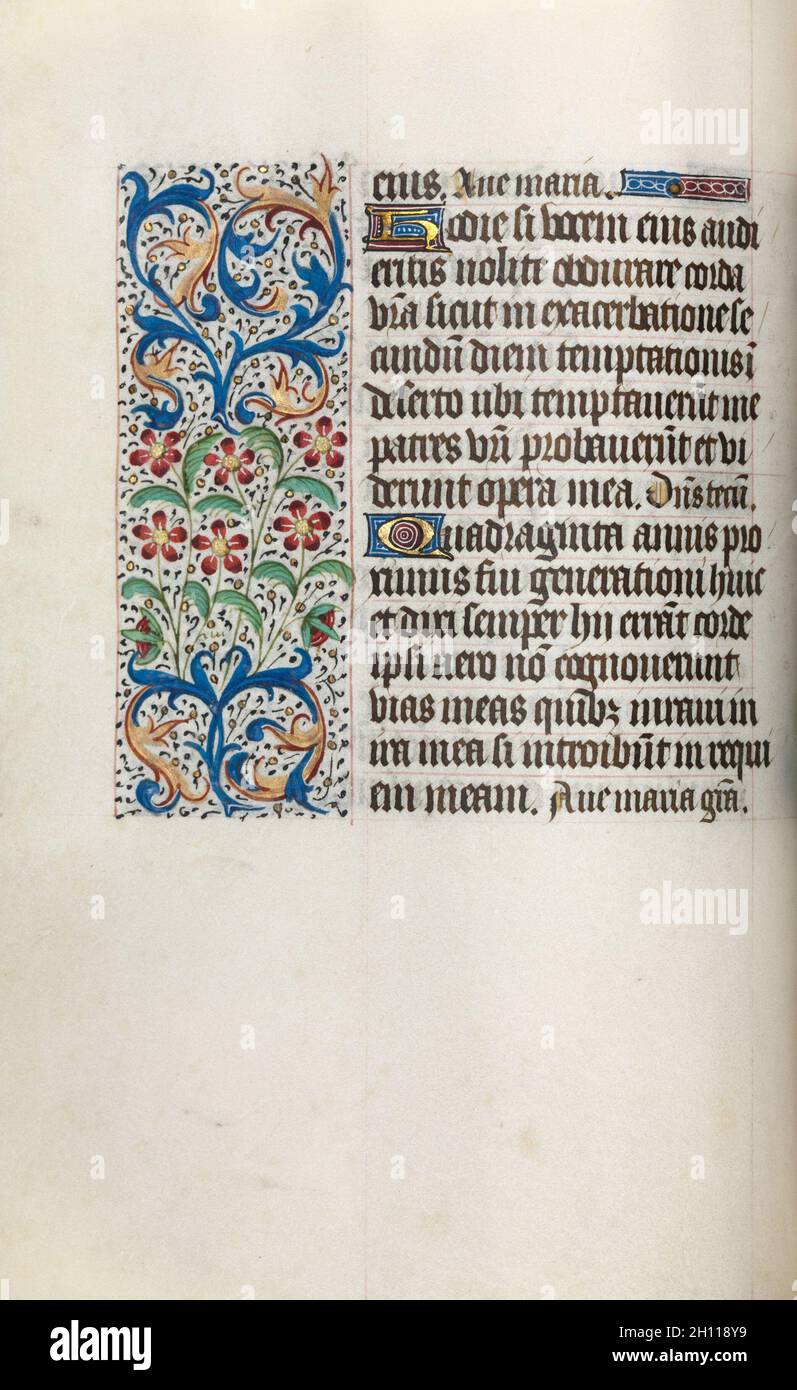 eius. Aue maria.
Hodie si vocem eius audi
eritis nolite obdurare corda
vr̃a sicut in exacerbatione se
cundũ diem temptationis ĩ
deserto ubi temptauerũt me
patres vr̃i probauerũt et vi
derunt opera mea. Dñs tecũ.
Quadraginta annis pro
ximus fui generationi huic
et dixi semper hii errãt corde
ipsi uero nõ cognouerunt
vias meas quibꝫ iuraui in
ira mea si introibũt in requi
em meam. Aue maria grã.
alamy
Image ID: 2H118Y9
www.alamy.com